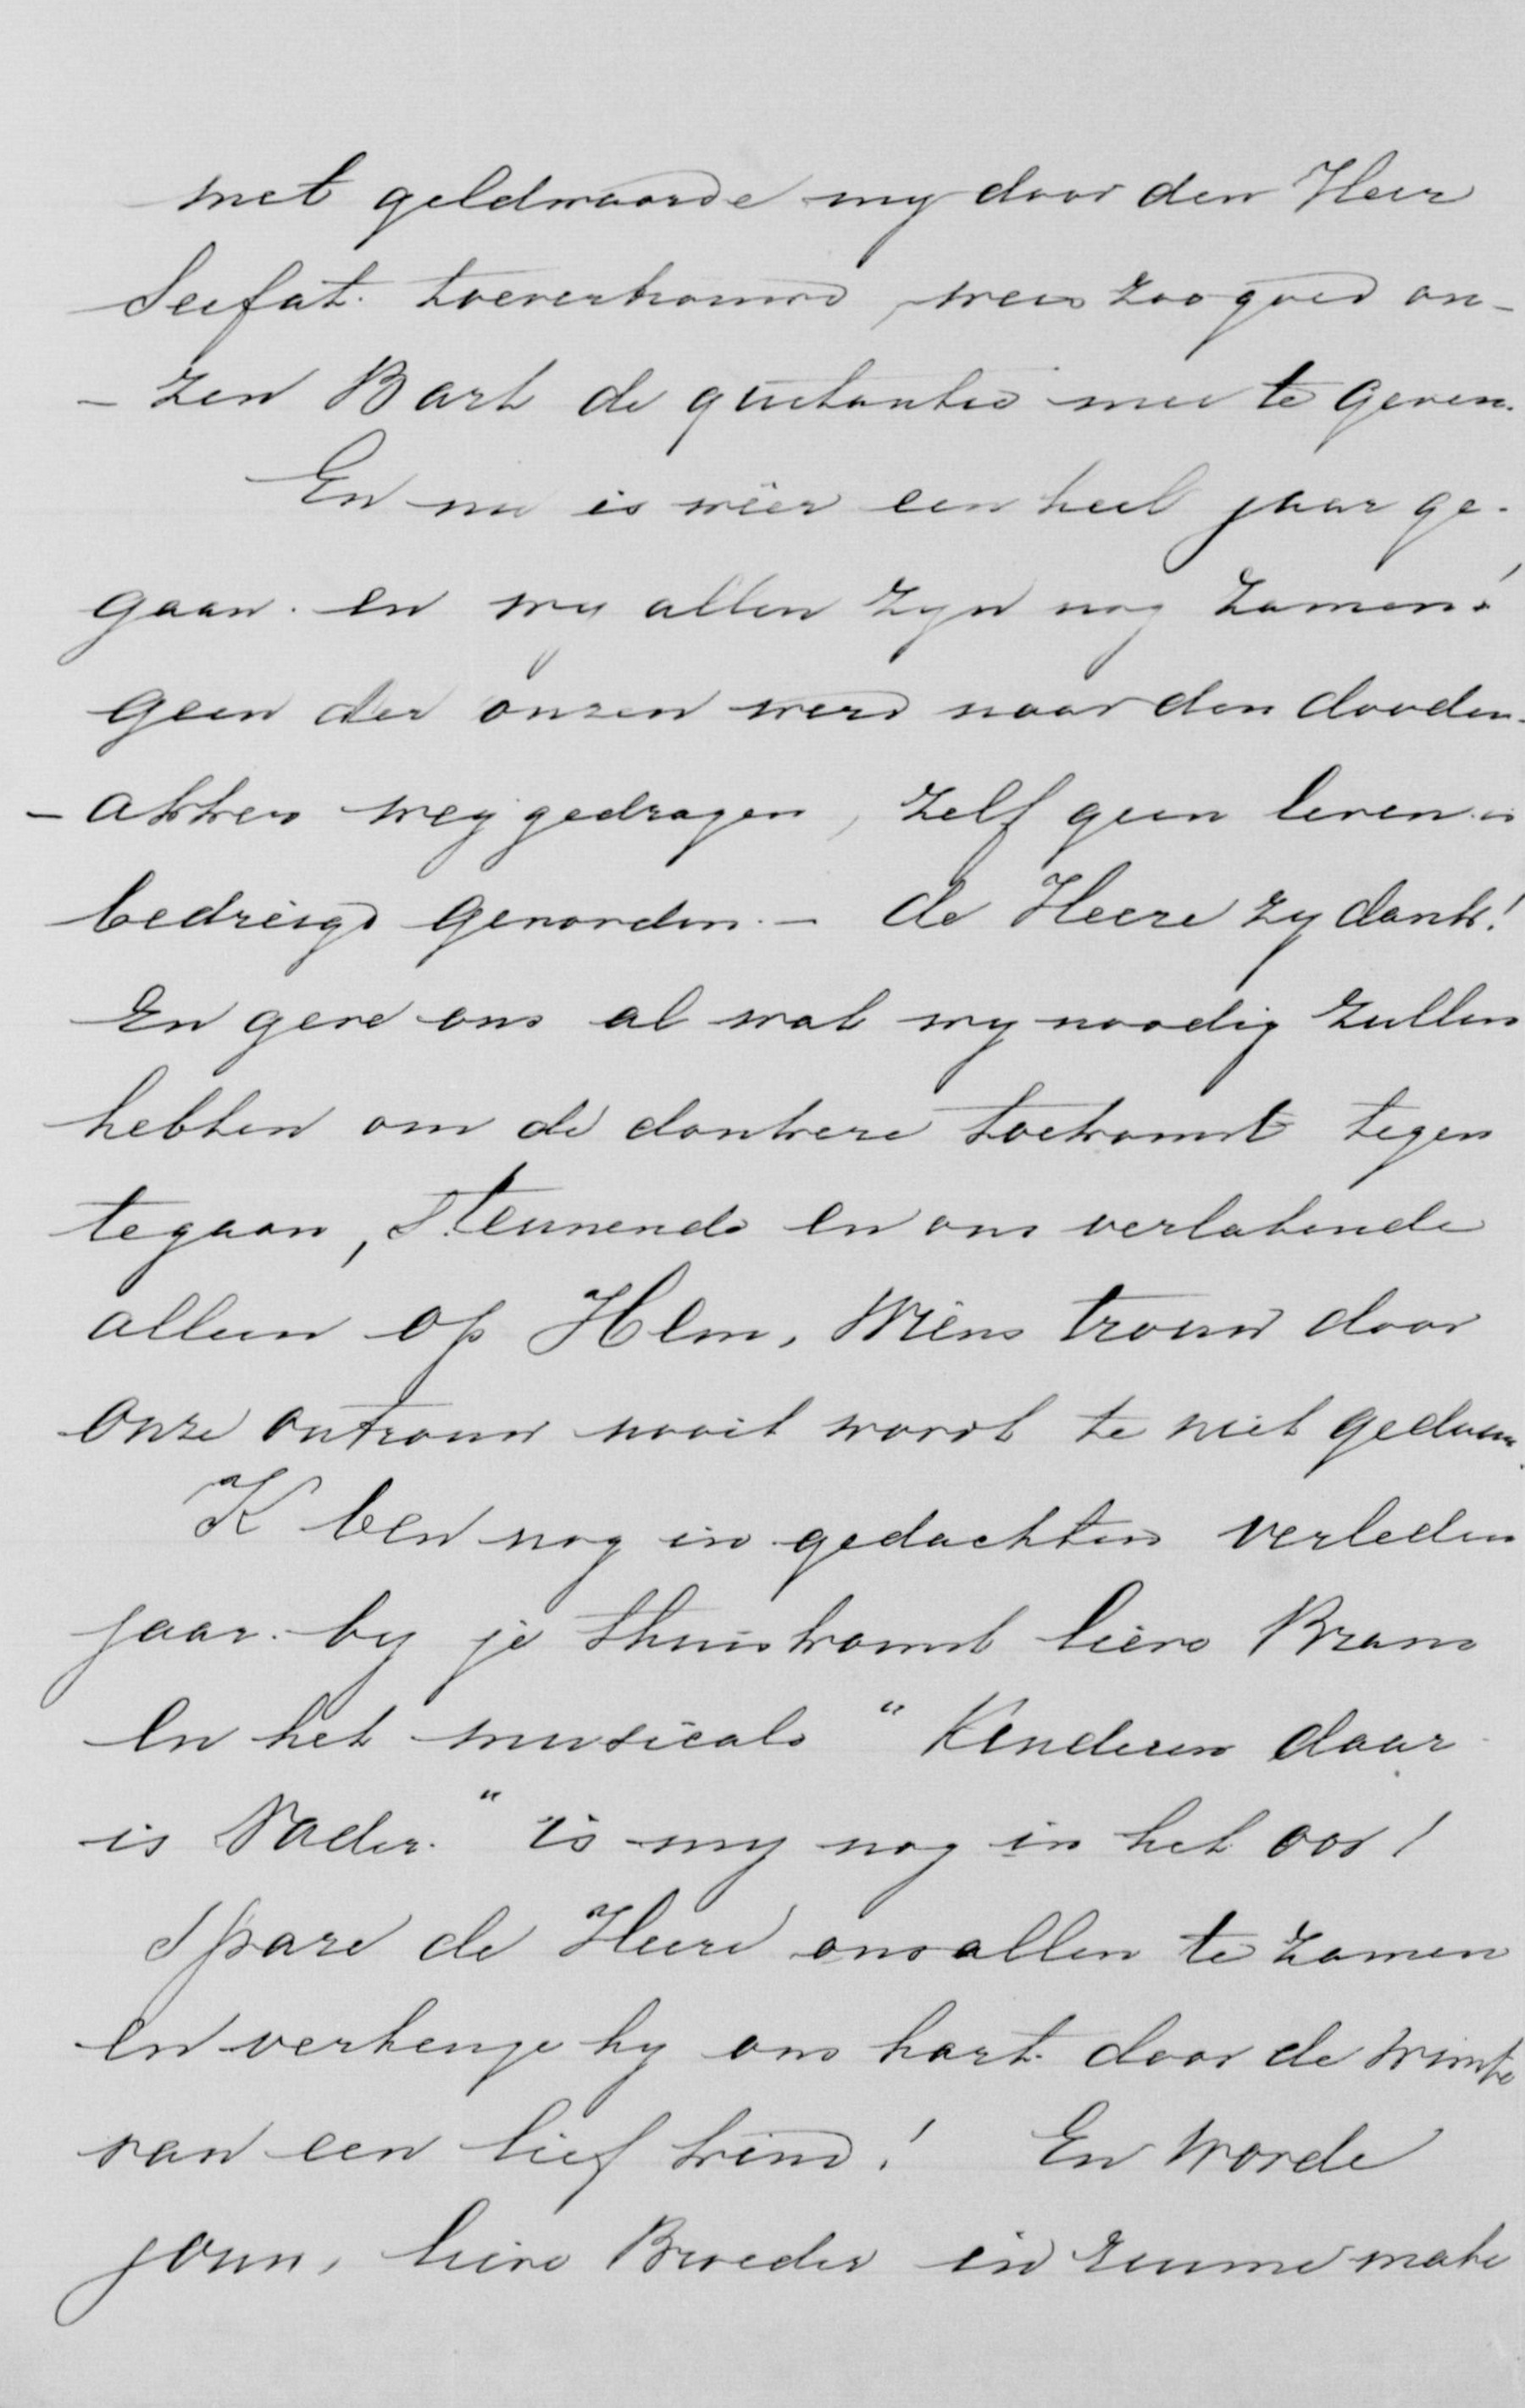 met geldwaarde my door den Heer
Seefat. toevertrouwd, wees zoo goed on-
- zen Bart de quitantie mee te geven.
En nu is wéer een heel jaar ge-
gaan. en wy allen zyn nog zamen!
geen der onzen werd naar den dooden-
- akker weg gedragen, zelf geen leven is
bedreigd geworden. - de Heere zy dank!
En geve ons al wat wy noodig zullen
hebben om de donkere toekomst tegen
te gaan, steunende en ons verlatende
alleen op Hem, Wiens trouw door
onze ontrouw nooit wordt te niet gedaan.
'K ben nog in gedachten verleden
jaar. by je thuiskomst lieve Bram
en het musicale "Kinderen daar
is Vader." is my nog in het oor!
Spare de Heere ons allen te zamen
en verheuge hy ons hart. door de komst
van een lief kind! En worde
jouw, lieve Broeder in ruime mate